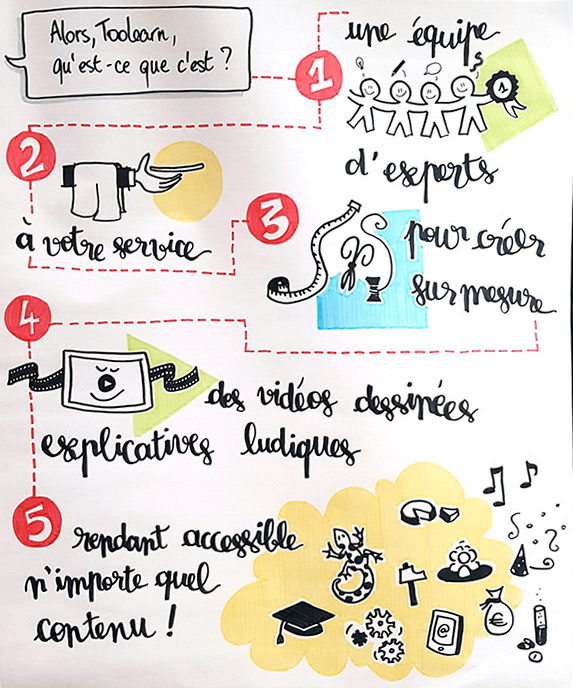 Alors, Toolearn,
qu'est-ce que c'est ?
1
une équipe
1
d'experts
2
à votre service
3
pour créer
sur mesure
4
des vidéos dessinées
explicatives ludiques
5
rendant accessible
n'importe quel
contenu !